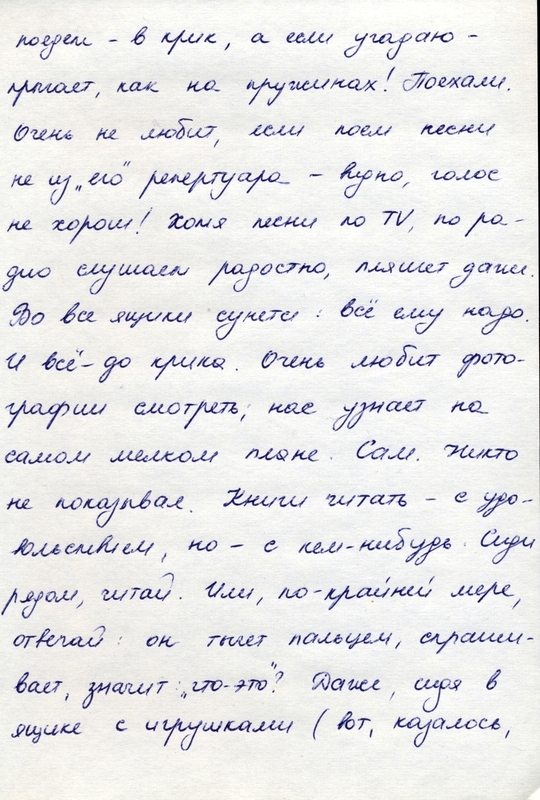 поедем – в крик, а если угадаю –
прыгает, как на пружинах! Поехали.
Очень не любит, если поём песни
не из „его" репертуара – видно, голос
не хорош! Хотя песни по TV, по ра-
дио слушает радостно, пляшет даже.
Во все ящики сунется: всё ему надо.
И всё – до крика. Очень любит фото-
графии смотреть; нас узнает на
самом мелком плане. Сам. Никто
не показывал. Книги читать – с удо-
вольствием, но – с кем-нибудь. Сиди
рядом, читай. Или, по-крайней мере,
отвечай: он тычет пальцем, спраши-
вает, значит: „что-это"? Даже, сидя в
ящике с игрушками (вот, казалось,